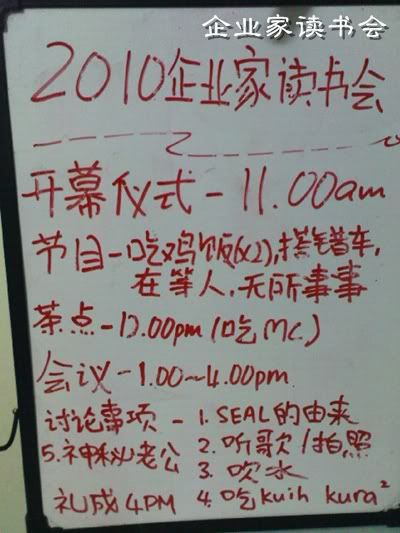 企业家读书会
2010企业家读书会
开幕仪式-11.00am
节目-吃鸡饭(x2),搭错车,
在等人,无所事事
茶点-12.00pm(吃Mc)
会议-1.00~4.00pm
讨论事项-1. SEAL的由来
5.神秘老公 2. 听歌/拍照
3. 吹水
礼成4PM 4. 吃kuih kura²